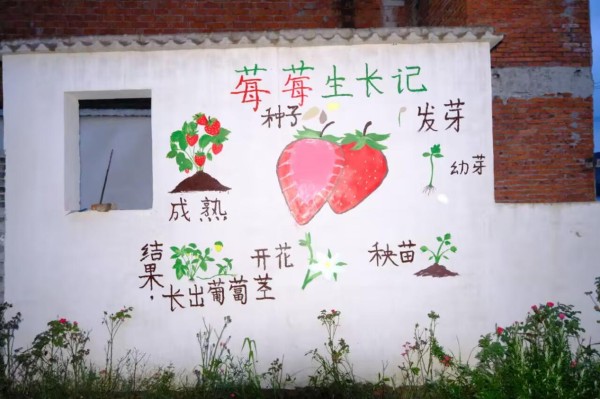 莓莓生长记
种子
发芽
幼芽
成熟
秧苗
开花
结果,
长出葡萄茎